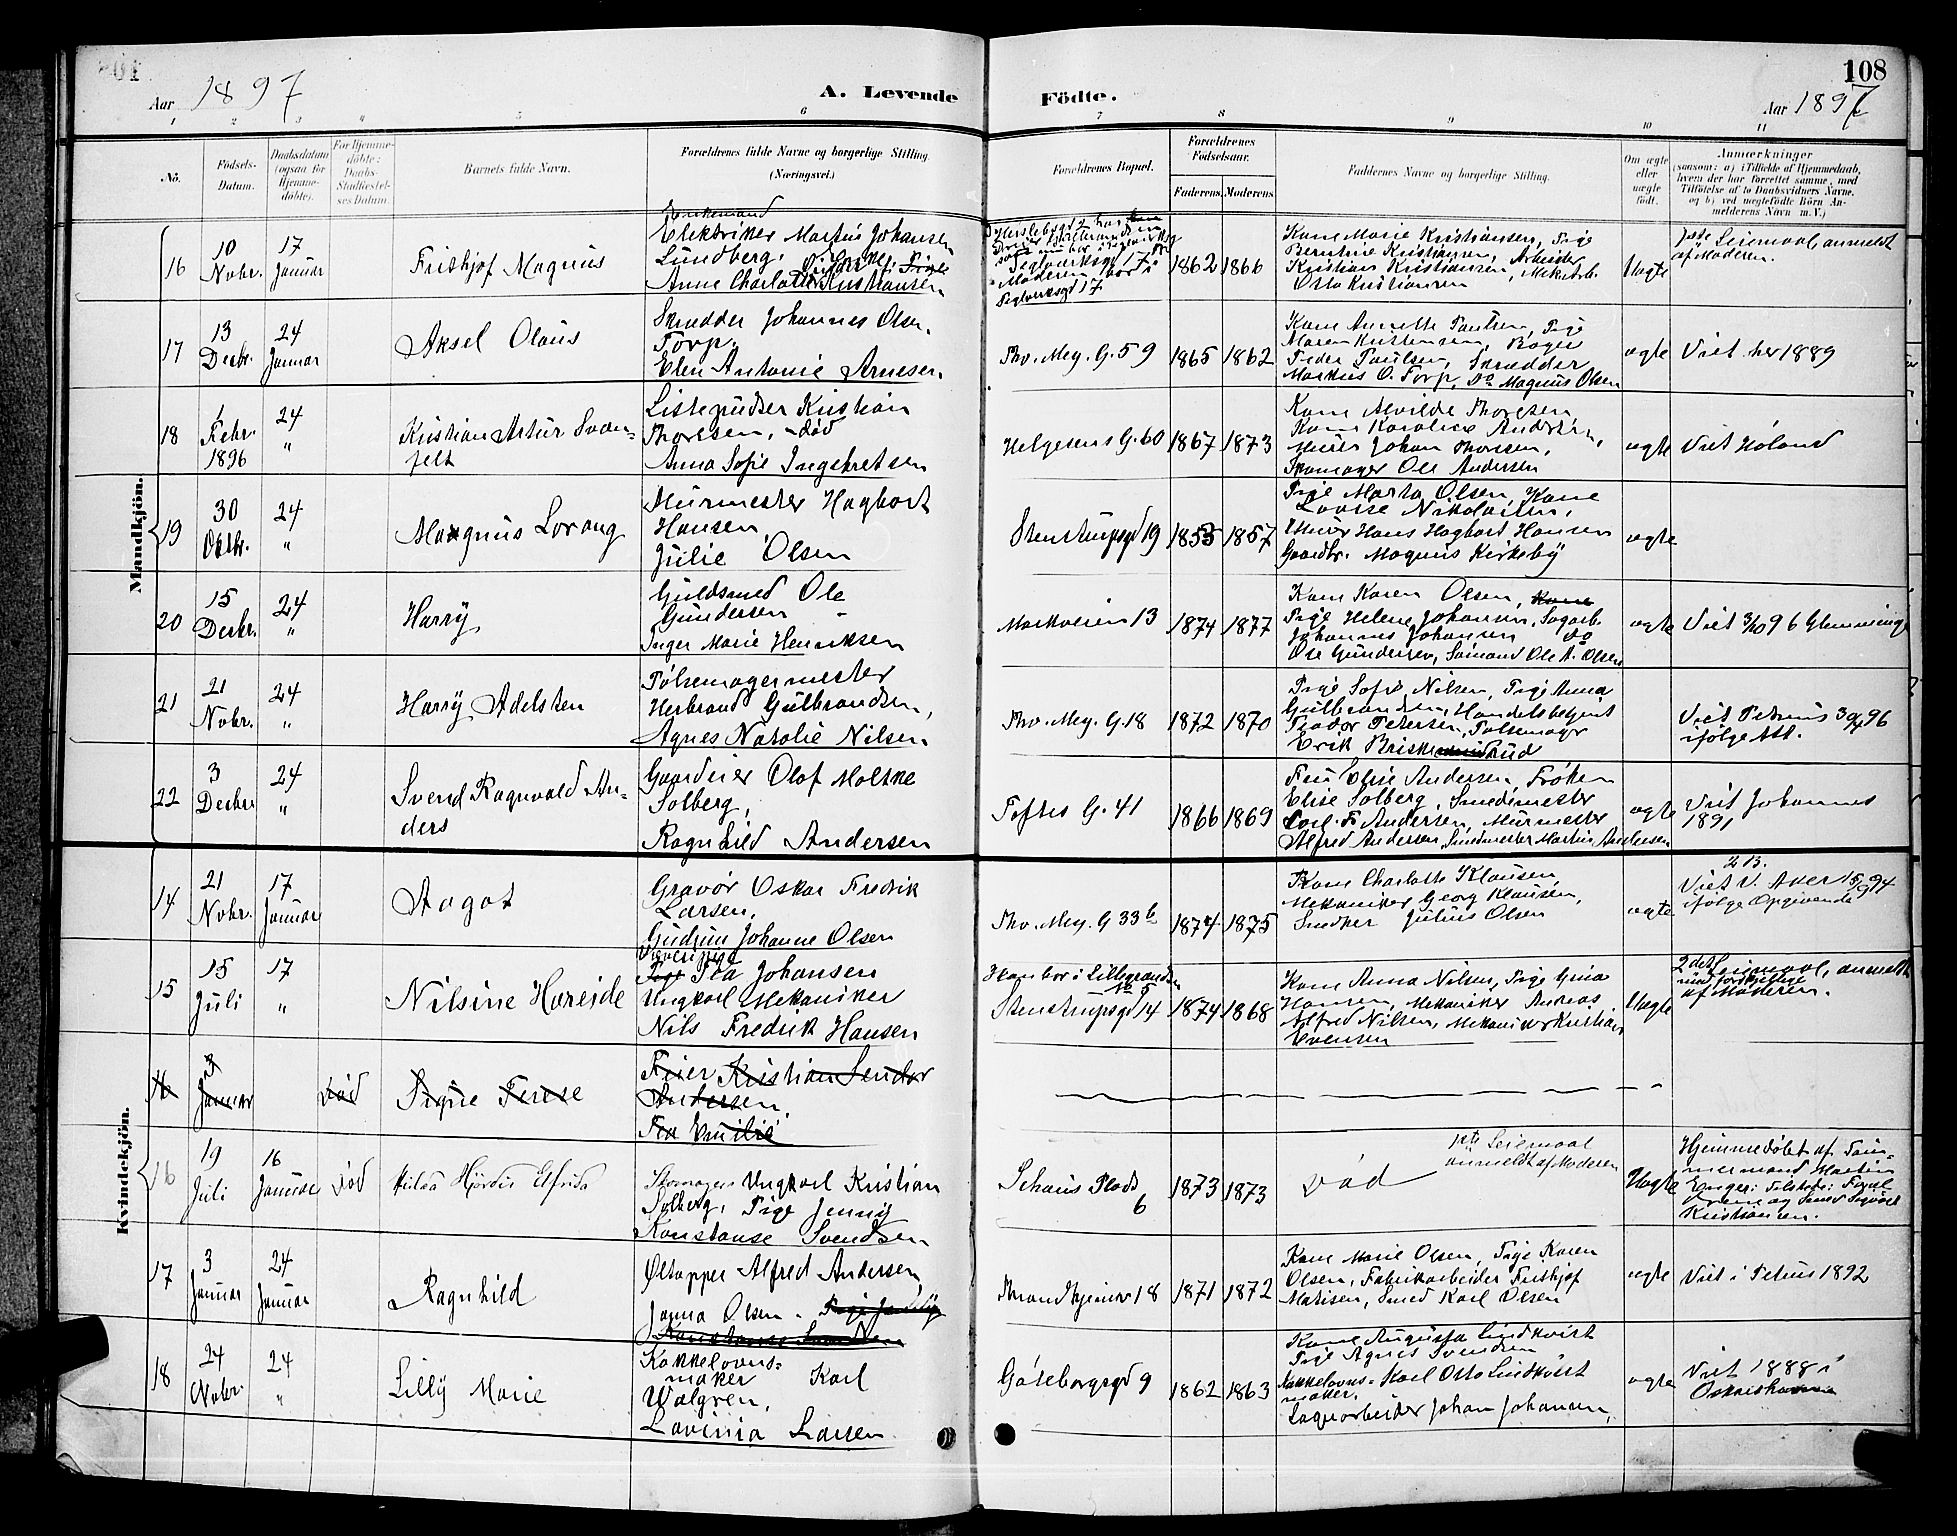 108
Aar 1897
A. Levende
Födte.
Aar 1897
1 2 3 4 5 6 7 8 9 10 11
No.
Födsels-Datum.
Daabsdatum (ogsaa for Hjemmedöbte).
For Hjemmedöbte: Daabs-Stadfæstelses Datum.
Barnets fulde Navn.
Forældrenes fulde Navne og borgerlige Stilling (Næringsvei.)
Forældrenes Bopæl.
Forældrenes Födselsaar.
Faderens. Moderens.
Faddernes Navne og borgerlige Stilling.
Om ægte eller uægte födt.
Anmærkninger
(saasom: a) i Tilfælde af Hjemmedaab, hvem der har forrettet samme, med Tilföielse af to Daabsvidners Navne, og b) ved uægtefödte Börn Anmelderens Navn m. V.)
Mandkjön.
16
10 Novbr.
17 Januar
Frithjof Magnus
Enkemand
Elektriker Martus Johansen
Lundberg. Pige
Anne Charlotte Kristiansen
Moderen bor i
Teglverksgd 17
1862 1866
Kone Marie Kristiansen, Pige
Berntine Kristiansen, Arbeider
Kristian Kristiansen, Mek. Arb.
Otto Kristiansen
Uægte
1ste Leiermaal, anmeldt
af Moderen.
17
13 Decbr.
24 Januar
Aksel Olaus
Skrædder Johannes Olsen
Torp.
Elen Antonie Arnesen
Thv. Mey. G. 59
1865 1862
Kone Annette Paulsen, Pige
Maren Kristensen, Bager
Peder Paulsen, Skrædder
Markus O. Torp, Do Magnus Olsen
ægte
Viet her 1889
18
1 Febr. 1896
24 "
Kristian Artur Svanfelt
Listepudser Kristian
Thoresen, død
Anna Sofie Ingebretsen
Helgesens G. 60
1867 1873
Kone Alvilde Thoresen
Kone Karoline Andersen,
Murer Johan Thoresen,
Skomager Ole Andersen
ægte
Viet Høland
19
30 Oktbr.
24 "
Magnus Lorang
Murmester Hagbart
Hansen
Julie Olsen
Stenstrupsgd 19
1853 1857
Pige Marta Olsen, Kone
Lovise Nikolaisen,
Murer Hans Hagbart Hansen
Gaardbr. Magnus Kirkeby
ægte
20
15 Decbr.
24 "
Harry
Guldsmed Ole
Gundersen
Inger Marie Henriksen
Markveien 13
1874 1877
Kone Karen Olsen,
Pige Helene Johansen, Sagarb.
Johannes Johansen do
Ole Gundersen, Sømand Ole A. Olsen
ægte
Viet 3/10 96 Glemminge
21
21 Novbr.
24 "
Harry Adelsten
Pølsemagermester
Herbrand Gulbrandsen,
Agnes Natalie Nilsen
Thv. Mey. G. 18
1872 1870
Pige Sofie Nilsen, Pige Anna
Gulbrandsen, Handelsbetjent
Teodor Petersen, Pølsemager
Viet Petrus 96
ifølge Att.
22
3 Decbr
24 "
Svend Ragnvald Anders
Gaardeier Olaf Moltke
Solberg,
Ragnhild Andersen
Toftes G. 41
1866 1869
Fru Elise Andersen, Frøken
Elise Solberg, Smedmester
Carl F. Andersen, Murmester
Alfred Andersen, Smedmester Martin Andersen
ægte
Viet Johannes
1891
Kvindekjön.
14
21 Novbr.
17 Januar
Aagot
Gravør Oskar Fredrik
Larsen,
Gudrun Johanne Olsen
Thv. Mey. G 33 b
1874 1875
Kone Charlotte Klausen,
Mekaniker Georg Klausen,
Snedker Julius Olsen
ægte
2 B.
Viet V. Aker 15/9 94
ifølge Opgivende
15
15 Juli
17 "
Nilsine Hareide
Væverpige
Pige Tea Johansen
Ungkarl Mekaniker
Nils Fredrik Hansen
Han bor i Lillegrændsen
No 5
Stenstrupsgd 14
1874 1868
Kone Anna Nilsen, Pige Gina
Hansen, Mekaniker Andreas
Alfred Nilsen, Mekaniker Kristian
Evensen
Uægte
2det Leiermaal, anmeldt
af Moderen.
16
3 Januar
død
Signe Terese
Feier Kristian Sendor
Andersen,
Tea Emilie
16
19 Juli
16 Januar
død
Hilda Hjørdis Elfrida
Skomager Ungkarl Kristian
Solberg, Pige Jenny
Konstanse Svendsen
Schous Plads
6
1873 1873
død
1ste Leiermaal
anmeldt af Moderen
Uægte
Hjemmedøbt af Tømmermand Martin
Enger: Tilstede:
Kristiansen.
17
3 Januar
24 Januar
Ragnhild
Øltapper Alfred Andersen
Janna Olsen. Pige Jenny
Konstanse Svendsen
Trondhjemsv 18
1871 1872
Kone Marie Olsen, Pige Karen
Olsen, Fabrikarbeider Frithjof
Matisen, Smed Karl Olsen
ægte
Viet i Petrus 1892
18
24 Novbr.
24 "
Lilly Marie
Kakkelovnsmaker Karl
Walgren,
Lavinia Larsen
Gøteborgsgd 9
1862 1863
Kone Augusta Lindkvist
Pige Agnes Svendsen
Kakkelovnsmaker, Karl Otto Lindkvist
Lagerarbeider Johan Johansen,
ægte
Viet 1888 i
Oskarshamn